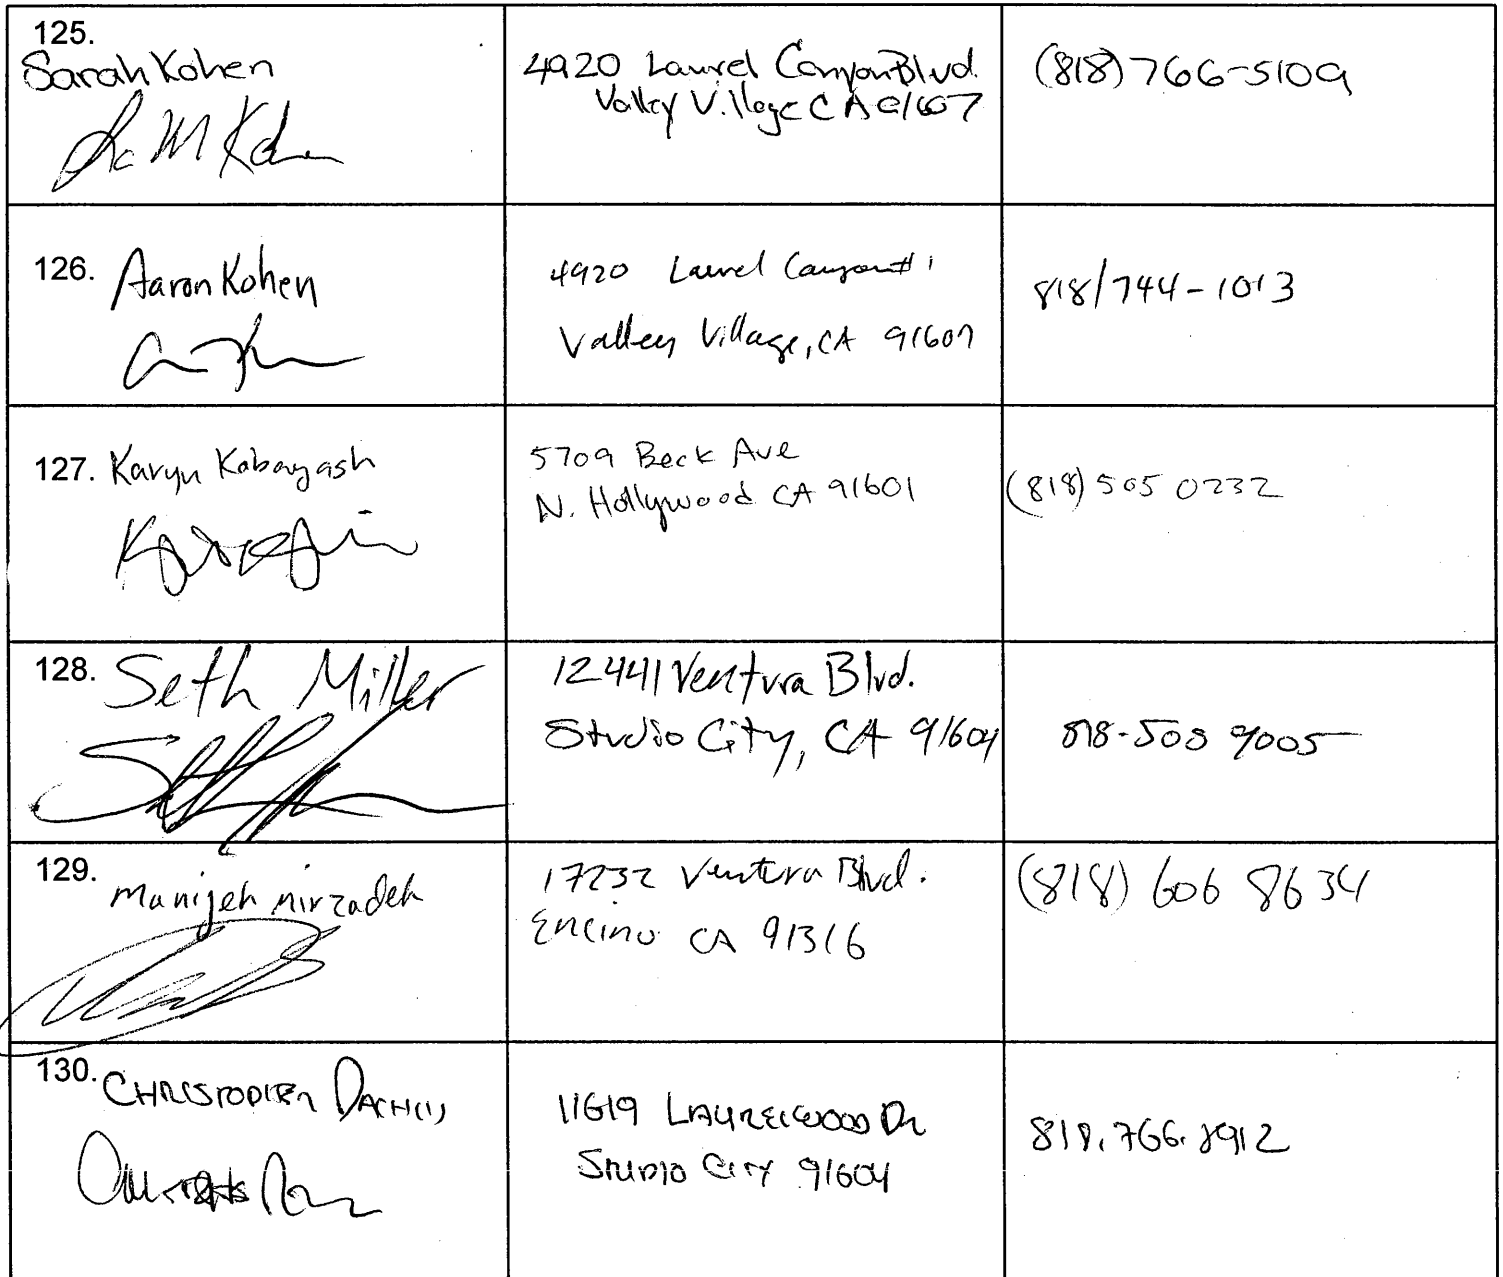 125.
Sarah Kohen
4920 Laurel Canyon Blvd.
Valley Village CA 91607
(818) 766-5109
126. Aaron Kohen
4920 Laurel Canyon #1
Valley Village, CA 91607
818/744-1013
127. Karyn Kobayash
5709 Beck Ave
N. Hollywood CA 91601
(818) 505 0232
128. Seth Miller
12441 Ventura Blvd.
Studio City, CA 91604
818-508 9005
129.
Manijeh mirzadeh
17232 Ventura Blvd.
Encino CA 91316
(818) 606 8634
130. CHRISTOPHER
11619 LAURELWOOD DR
STUDIO CITY 91604
818.766.8912